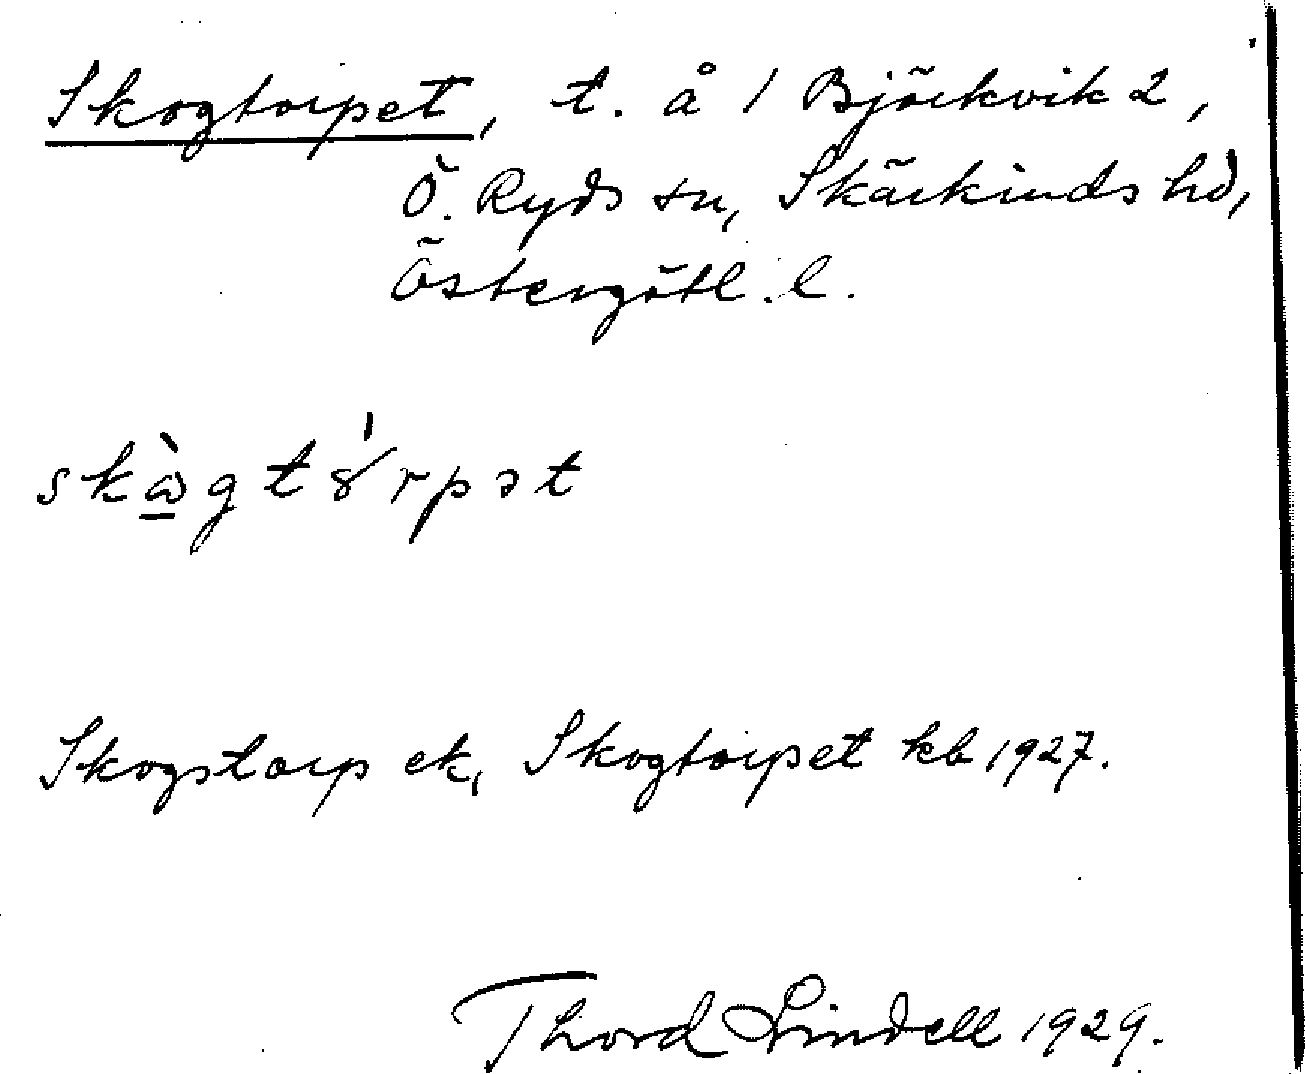 Skogtorpet, t. å 1 Björkvik 2,
Ö. Ryds sn, Skärkinds hd,
Östergötl. l.
skὼgtȣ́rpət
Skogstorp ek, Skogtorpet kb 1927.
Thord Lindell 1929.